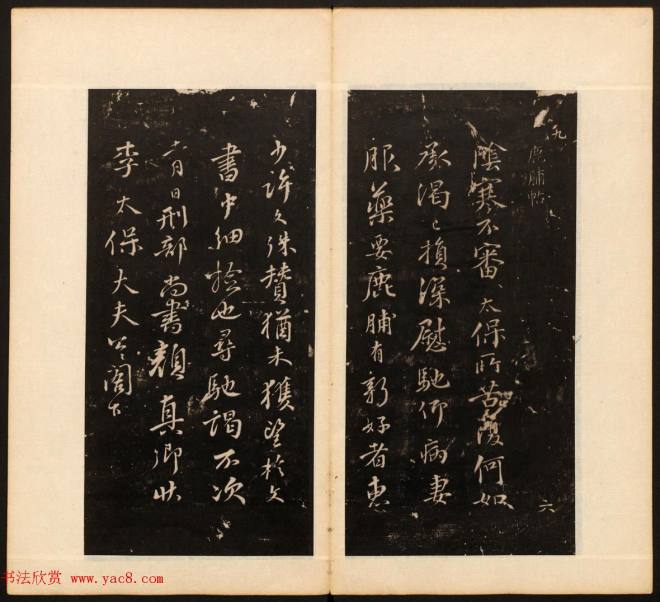 九
鹿脯帖
陰寒不審太保所苦復何如
承渴已損深慰馳仰病妻
服藥要鹿脯有新好者惠
六
少許文殊賛猶未獲望於文
書中細捡也尋馳謁不次
月日刑部尚書顏真卿狀
李太保大夫公閣下
书法欣赏 www.yac8.com